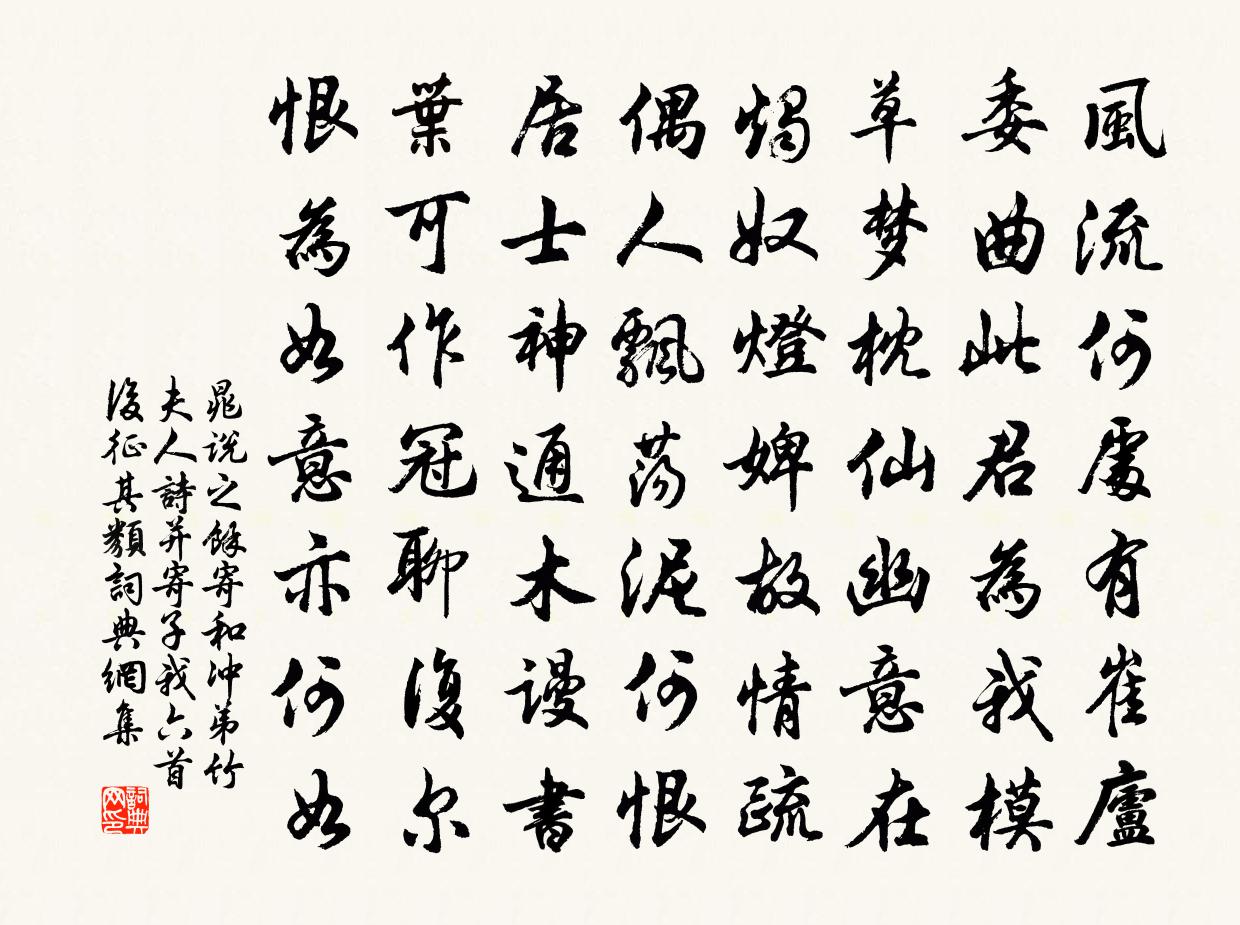 風流何處有崔廬
委曲此君為我模
草梦枕仙幽意在
燭奴燈婢故情疏
偶人飄蕩泥何恨
居士神通木謾書
葉可作冠聊復尔
恨為如意亦何如
晁說之餘寄和沖弟竹
夫人詩并寄子我六首
復征其類詞典網集
詞典网印